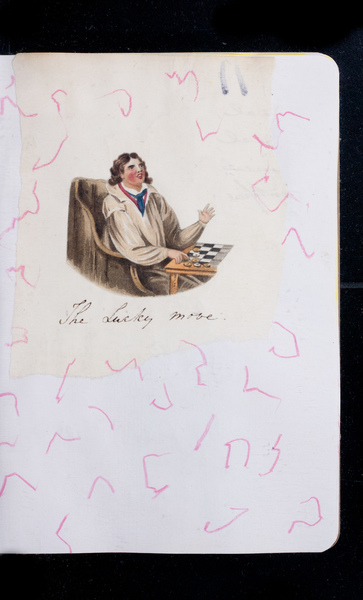 The Lucky move.